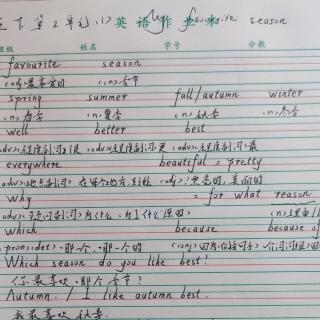 下第2单元(1) 英语作业本 My favourite season
班级 姓名 学号 分数
favourite season
(adj)最喜爱的 (n)季节
spring summer fall/autumn winter
(n)春季 (n)夏季 (n)秋季 (n)冬季
well better best
(adv)程度副词:很 (adv)程度副词:更 (adv)程度副词:最
everywhere beautiful = pretty
(adv)地点副词)在每个地方,到处 (adj)漂亮的,美丽的
Why = for what reason
(adv)疑问副词)为什么,为了什么原因
which because because of
(pron)(det)哪一个,哪一的
Which season do you like best?
你最喜欢哪个季节?
Autumn. / I like autumn best.
我最喜欢秋季.